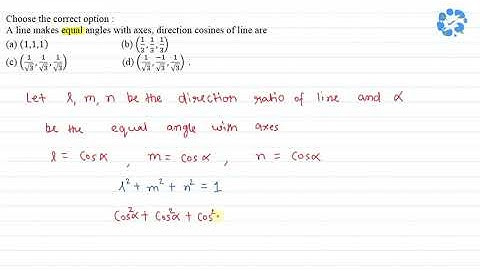 Choose the correct option :
A line makes equal angles with axes, direction cosines of line are
(a) (1,1,1) (b) (1/3, 1/3, 1/3)
(c) (1/√3, 1/√3, 1/√3) (d) (1/√3, -1/√3, 1/√3) .
Let l, m, n be the direction ratio of line and α
be the equal angle with axes
l = cosα , m = cosα , n = cosα
l² + m² + n² = 1
cos²α + cos²α + cos²